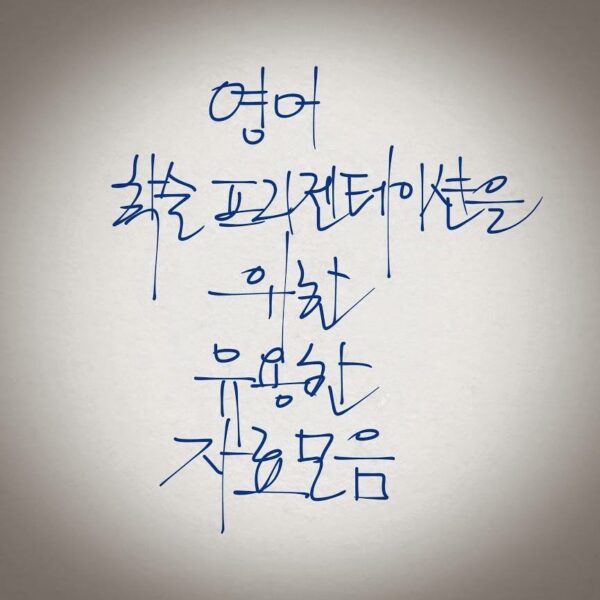 영어
학술 프리젠테이션을
위한
유용한
자료모음